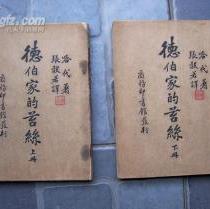 哈代著
張毅若譯
德伯家的苔絲
上册
商務印書館發行
哈代著
張毅若譯
德伯家的苔絲
下册
商務印書館發行